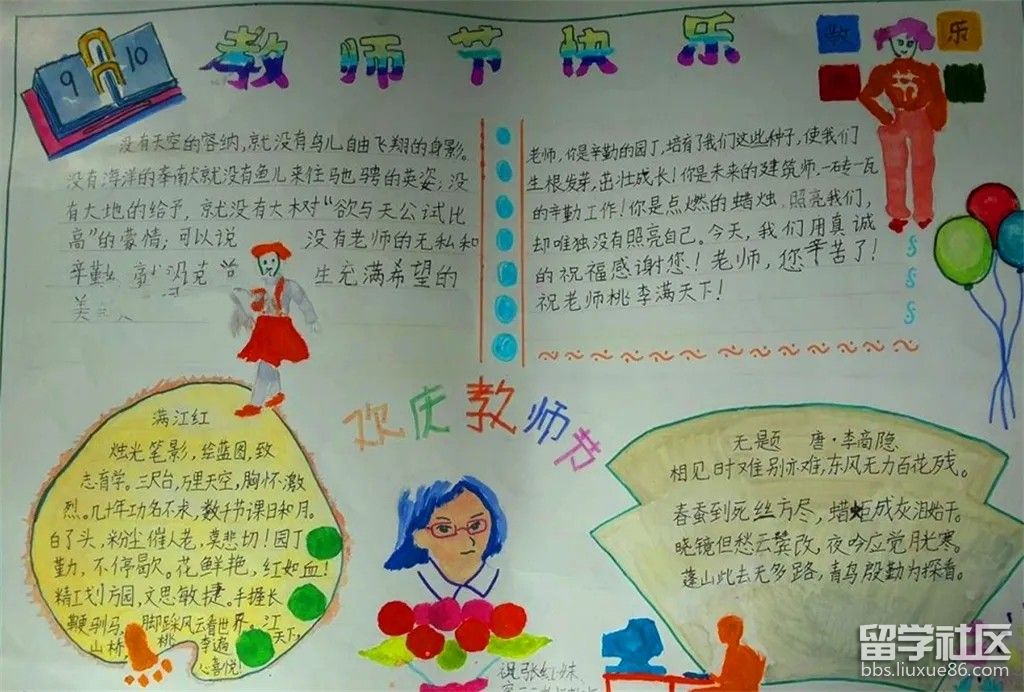 教师节快乐
9 10
教
乐
节
没有天空的容纳,就没有鸟儿自由飞翔的身影。
没有海洋的奉献就没有鱼儿来往驰骋的英姿;没
有大地的给予,就没有大树"欲与天公试比
高"的豪情;可以说 没有老师的无私和
辛勤
生充满希望的
美
老师,你是辛勤的园丁,培育了我们这些种子,使我们
生根发芽,茁壮成长!你是未来的建筑师,一砖一瓦
的辛勤工作!你是点燃的蜡烛,照亮我们,
却唯独没有照亮自己。今天,我们用真诚
的祝福感谢您!老师,您辛苦了!
祝老师桃李满天下!
欢庆教师节
满江红
烛光笔影,绘蓝图,致
志育学。三尺台,万里天空,胸怀激
烈。几十年功名不求,数千节课日和月。
白了头,粉尘催人老,莫悲切!园丁
勤,不停歇。花鲜艳,红如血!
精工划方园,文思敏捷。手握长
鞭驯马,脚踩风云看世界。江
山桥 桃李遍天下,
心喜悦!
无题 唐·李商隐
相见时难别亦难,东风无力百花残。
春蚕到死丝方尽,蜡炬成灰泪始干。
晓镜但愁云鬓改,夜吟应觉月光寒。
蓬山此去无多路,青鸟殷勤为探看。
祝张红妹
留学社区
bbs.liuxue86.com